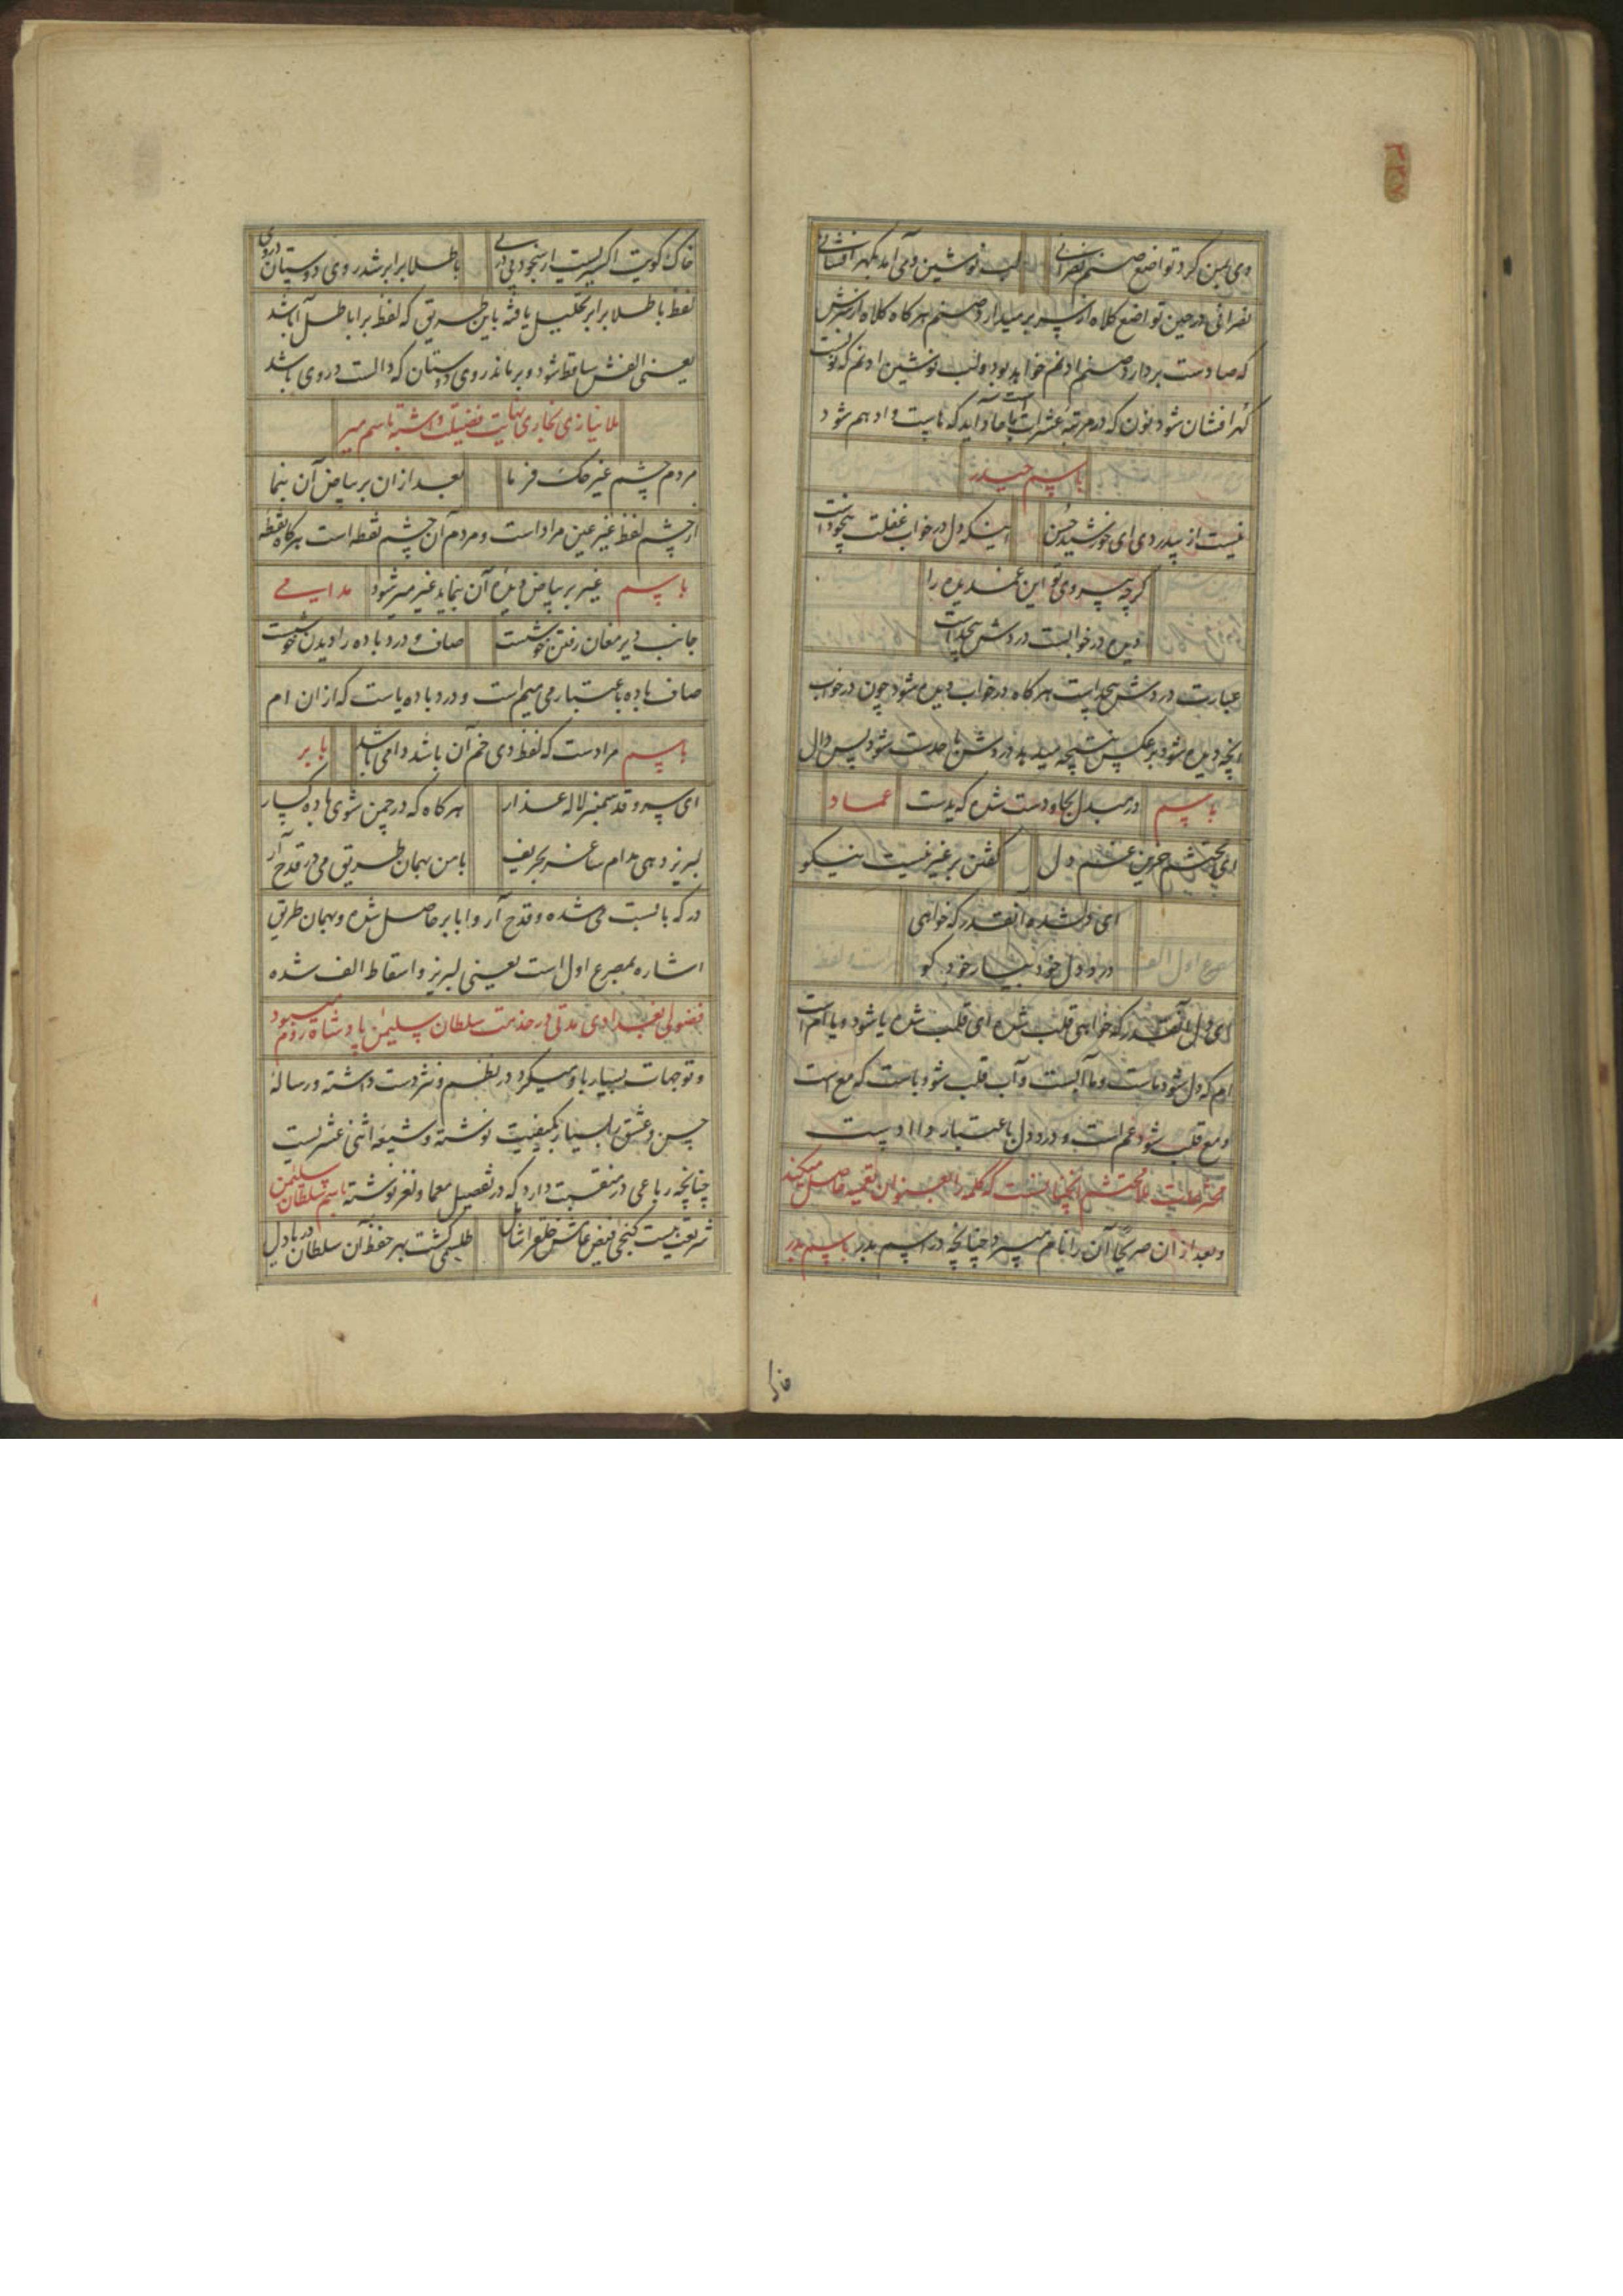 ۲۳۷
دی بمن کرد تواضع صنم نصرانی
لب نوشین وی آمد بکهر افشانی
نصرانی در حین تواضع کلاه از سر بر میدارد صنم هر کاه کلاه از سرش
که صادست بردارد صنم او نم خواهد بود و لب نوشین او نم که نونست
کهر افشان شود نون که در مرتبه عشرات با ما آید که ماییت و او هم شود
باسم حیدر
نیست از بیدردی ای خورشید حسن
اینکه دل در خواب غفلت بیخود است
کرچه بیروی تو این غمدیده را
دیده در خوابست دردش بیحد است
عبارت دردش بیحد است هر کاه در خواب دیده شود چون در خواب
انچه دیده شود بر عکس نتیجه میدهد دردش با حدست شود پس دال
باسم
در مبدل بحا و دست شده که یدست
عماد
ای محتشم حزین غم دل
کفتن بر غیر نیست نیکو
ای دل شده آنقدر که خواهی
درد دل خود بیار خود کو
ای دل آنقدر که خواهی قلب شده ای قلب شده یا شود و یا ام است
ام که دل شود ماست و ما آبست و آب قلب شود باست که مع است
و مع قلب شود عم است و درد دل باعتبار داا دست
مخترعات ملا محتشم انچنانست که کلمه را بعنوان تعمیه حاصل میکند
و بعد از ان صریحا آن را نام میبرد چنانچه در اسم بدر باسم بدر
خاک
خاک کویت اکسیریست از بیخودی در
با طلا برابر شد روی دوستان دروی
لفظ با طلا برابر تحلیل یافته باین طریق که لفظ برابا طل آ باشد
یعنی الفش ساقط شود و بر ماند روی دوستان که دالست دروی باشد
ملا نیازی بخاری نهایت فضیلت داشته باسم میر
مردم چشم غیر حک فرما
بعد ازان بر بیاض آن بنما
از چشم لفظ غیر عین مراد است و مردم آن چشم نقطه است هر کاه نقطه
باسم
غیر بر بیاض دیده آن نماید غیر میر شود
مدامی
جانب دیر مغان رفتن خوشست
صاف و درد باده را دیدن خوشست
صاف باده باعتبار می میم است و درد باده یاست که ازان ام
باسم
مرادست که لفظ دی خم آن باشد دامی باشد
بابر
ای سرو قد سمنبر لاله عذار
هر کاه که در چمن شوی باده کسار
لبریز دهی مدام ساغر بحریف
با من بهمان طریق می در قدح آر
در که بابست می شده و قدح آر و ابابر حاصل شده و بهمان طریق
اشاره بمصرع اول است یعنی لبریز و اسقاط الف شده
فضولی بغدادی مدتی در خدمت سلطان سلیمن پادشاه روم میبود
و توجهات بسیار باو میکرد در نظم و نثر دست داشته و رسالهٔ
حسن و عشق را بسیار بکیفیت نوشته و شیعه اثنی عشریست
چنانچه رباعی در منقبت دارد که در تفصیل معما و لغز نوشته باسم سلطان سلیمن
شریعت نیست کنجی فیض عامش خلق را شامل
طلسمی کشت بهر حفظ آن سلطان دریا دل